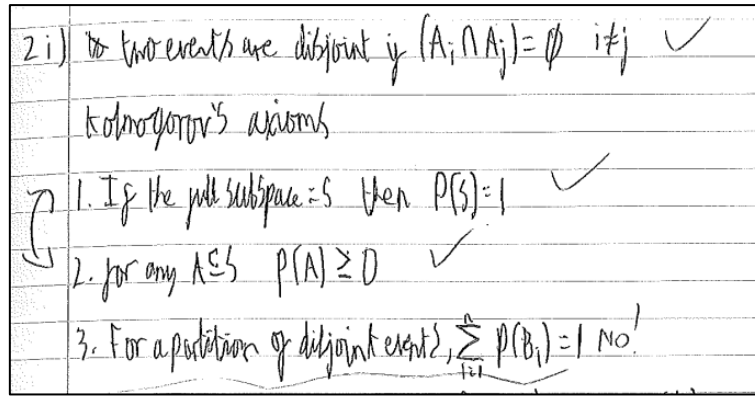 2 i) two events are disjoint if (A_i ∩ A_j) = ∅ i≠j ✓
Kolmogorov's axioms
1. If the full subspace = S then P(S) = 1 ✓
2. for any A ⊆ S P(A) ≥ 0 ✓
3. For a partition of disjoint events, ∑_{i=1}^{n} P(B_i) = 1 No!